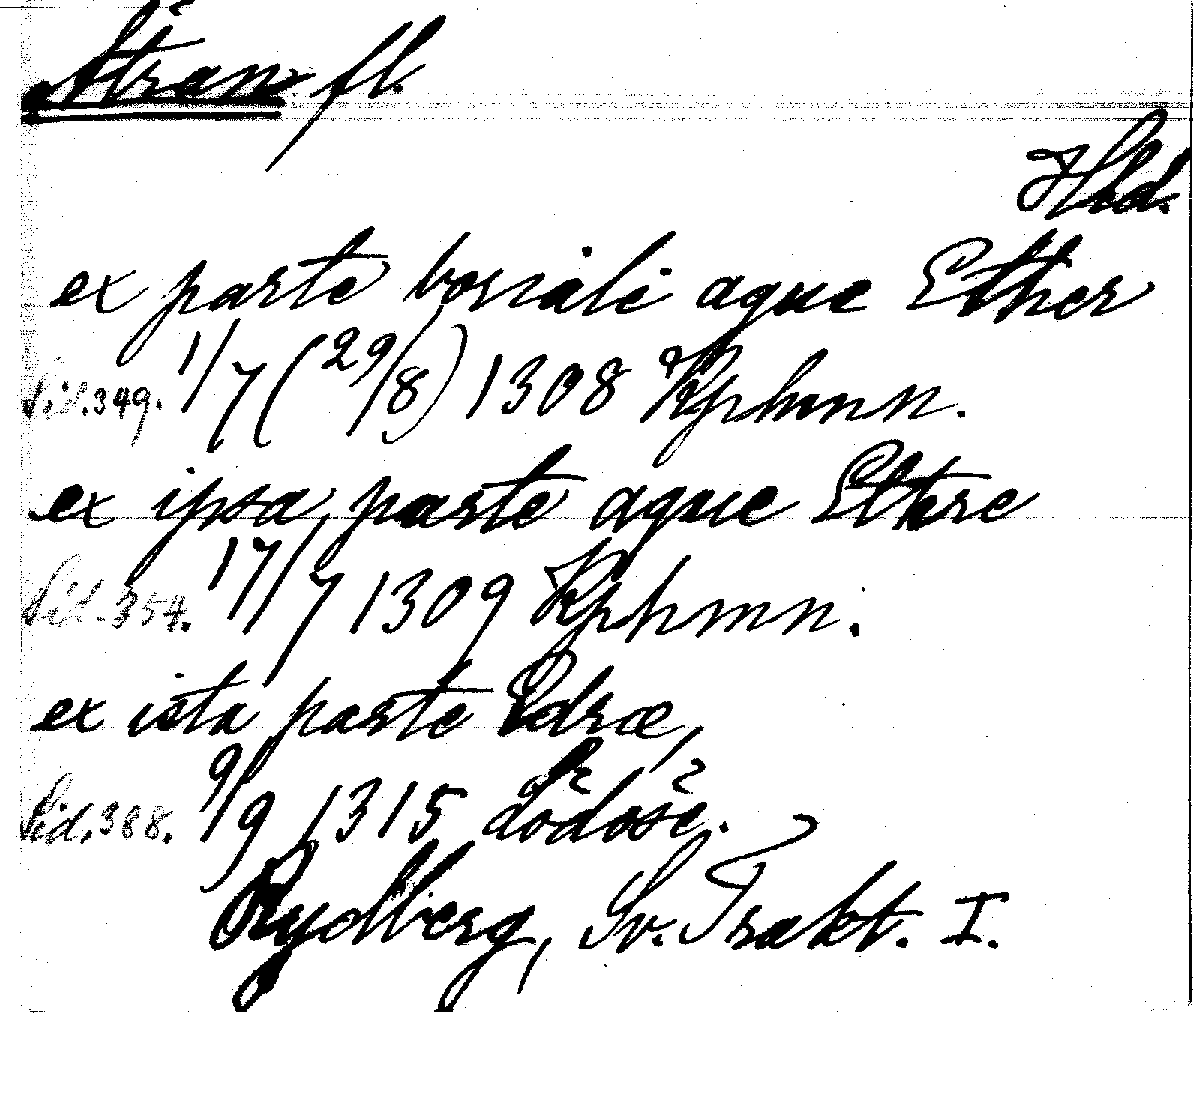 Ätran fl.
Hld.
ex parte boriali aque Ether
Sid. 349. 1/7 (29/8) 1308 Kphmn.
ex ipsa parte aque Ethre
Sid. 354. 17/7 1309 Kphmn.
ex ista parte Edræ,
Sid. 388. 9/9 1315 Lödöse.
Rydberg, Sv. Trakt. I.